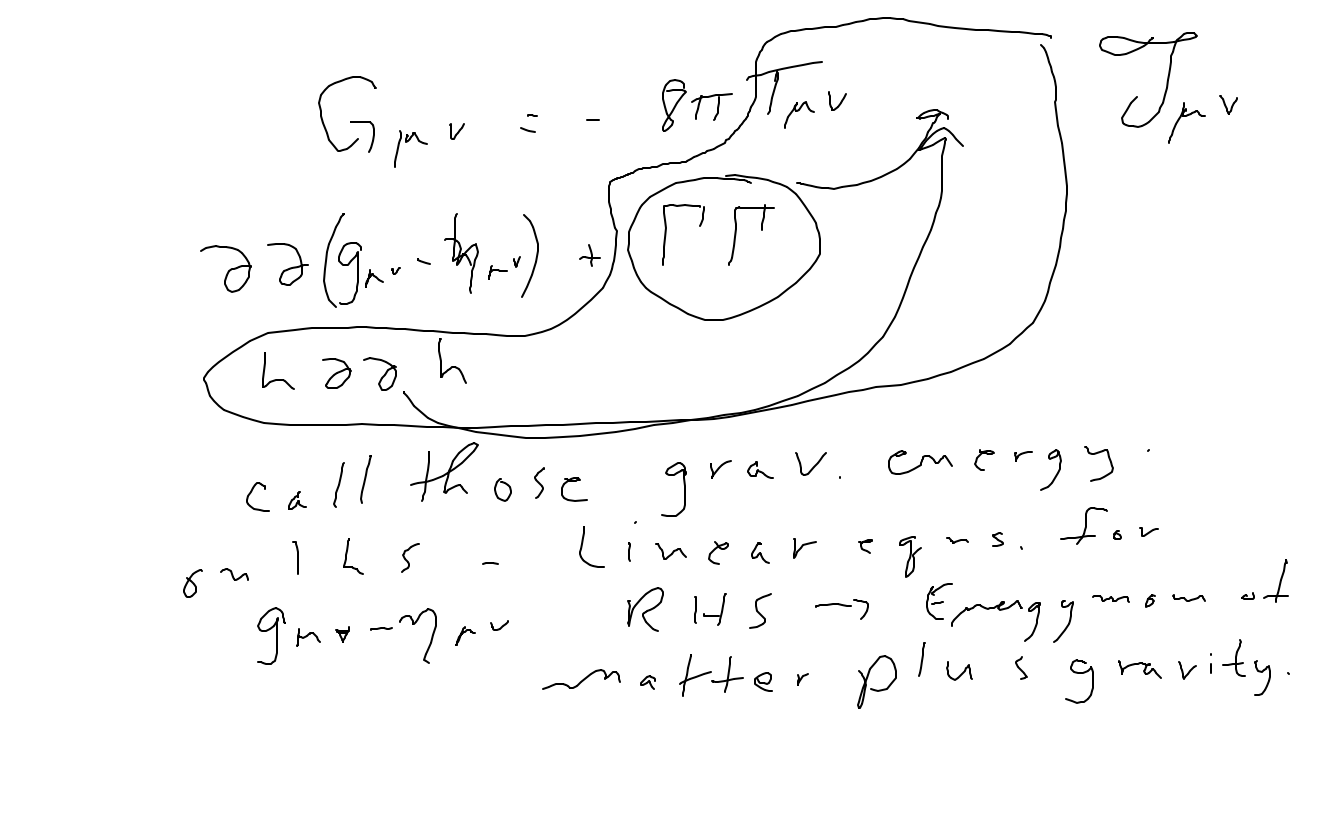 G_μν = - 8π T_μν
𝒯_μν
∂∂(g_μν - η_μν) + ΓΓ
h ∂∂ h
call those grav. energy.
on lhs - Linear eqns. for
g_μν - η_μν RHS → Energy mom of
matter plus gravity.